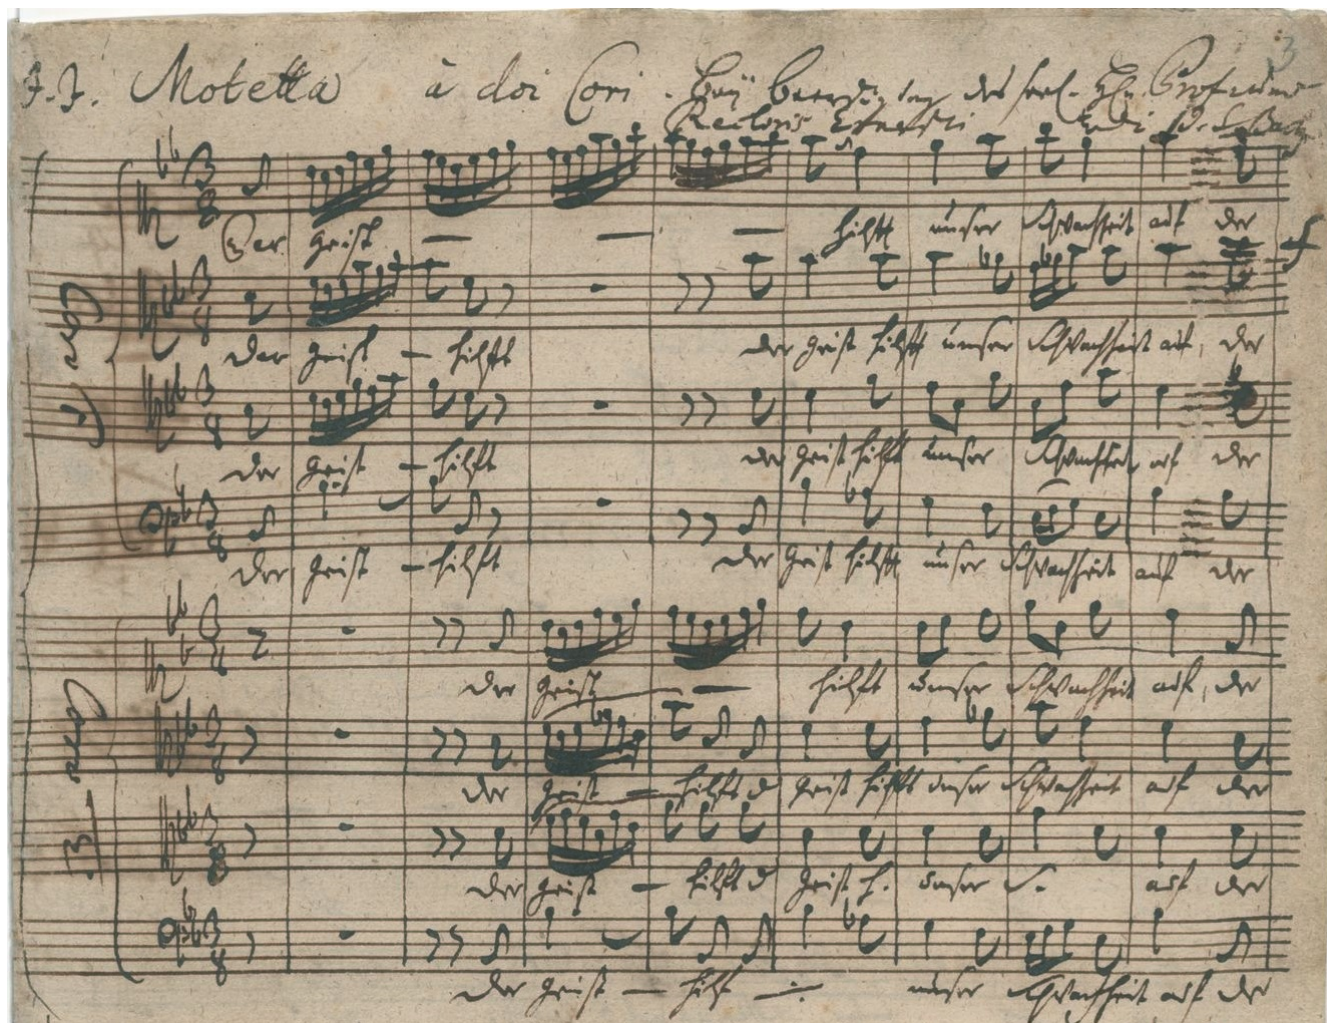 3
J. J. Motetta à doi Cori. Beÿ Beerdigung des seel. Hn. Profeßoris
Rectoris Ernesti di J. S. Bach
Der Geist — — — hilfft unser Schwachheit auf der
der Geist — hilfft der Geist hilfft unser Schwachheit auf, der
der Geist — hilft der Geist hilfft unser Schwachheit auf der
der Geist — hilfft der Geist hilfft unser Schwachheit auf der
der Geist — hilft unser Schwachheit auf, der
der Geist — hilfft d Geist hilfft unser Schwachheit auf der
der Geist — hilfft d Geist h. unser S. auf der
der Geist — hilft unser Schwachheit auf der